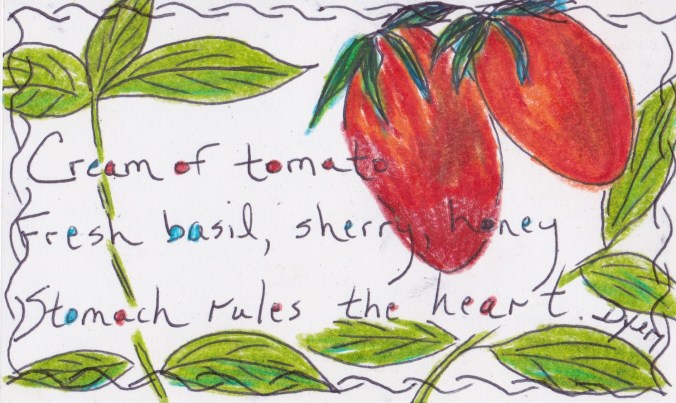 Cream of tomato
Fresh basil, sherry, honey
Stomach rules the heart. Dyer